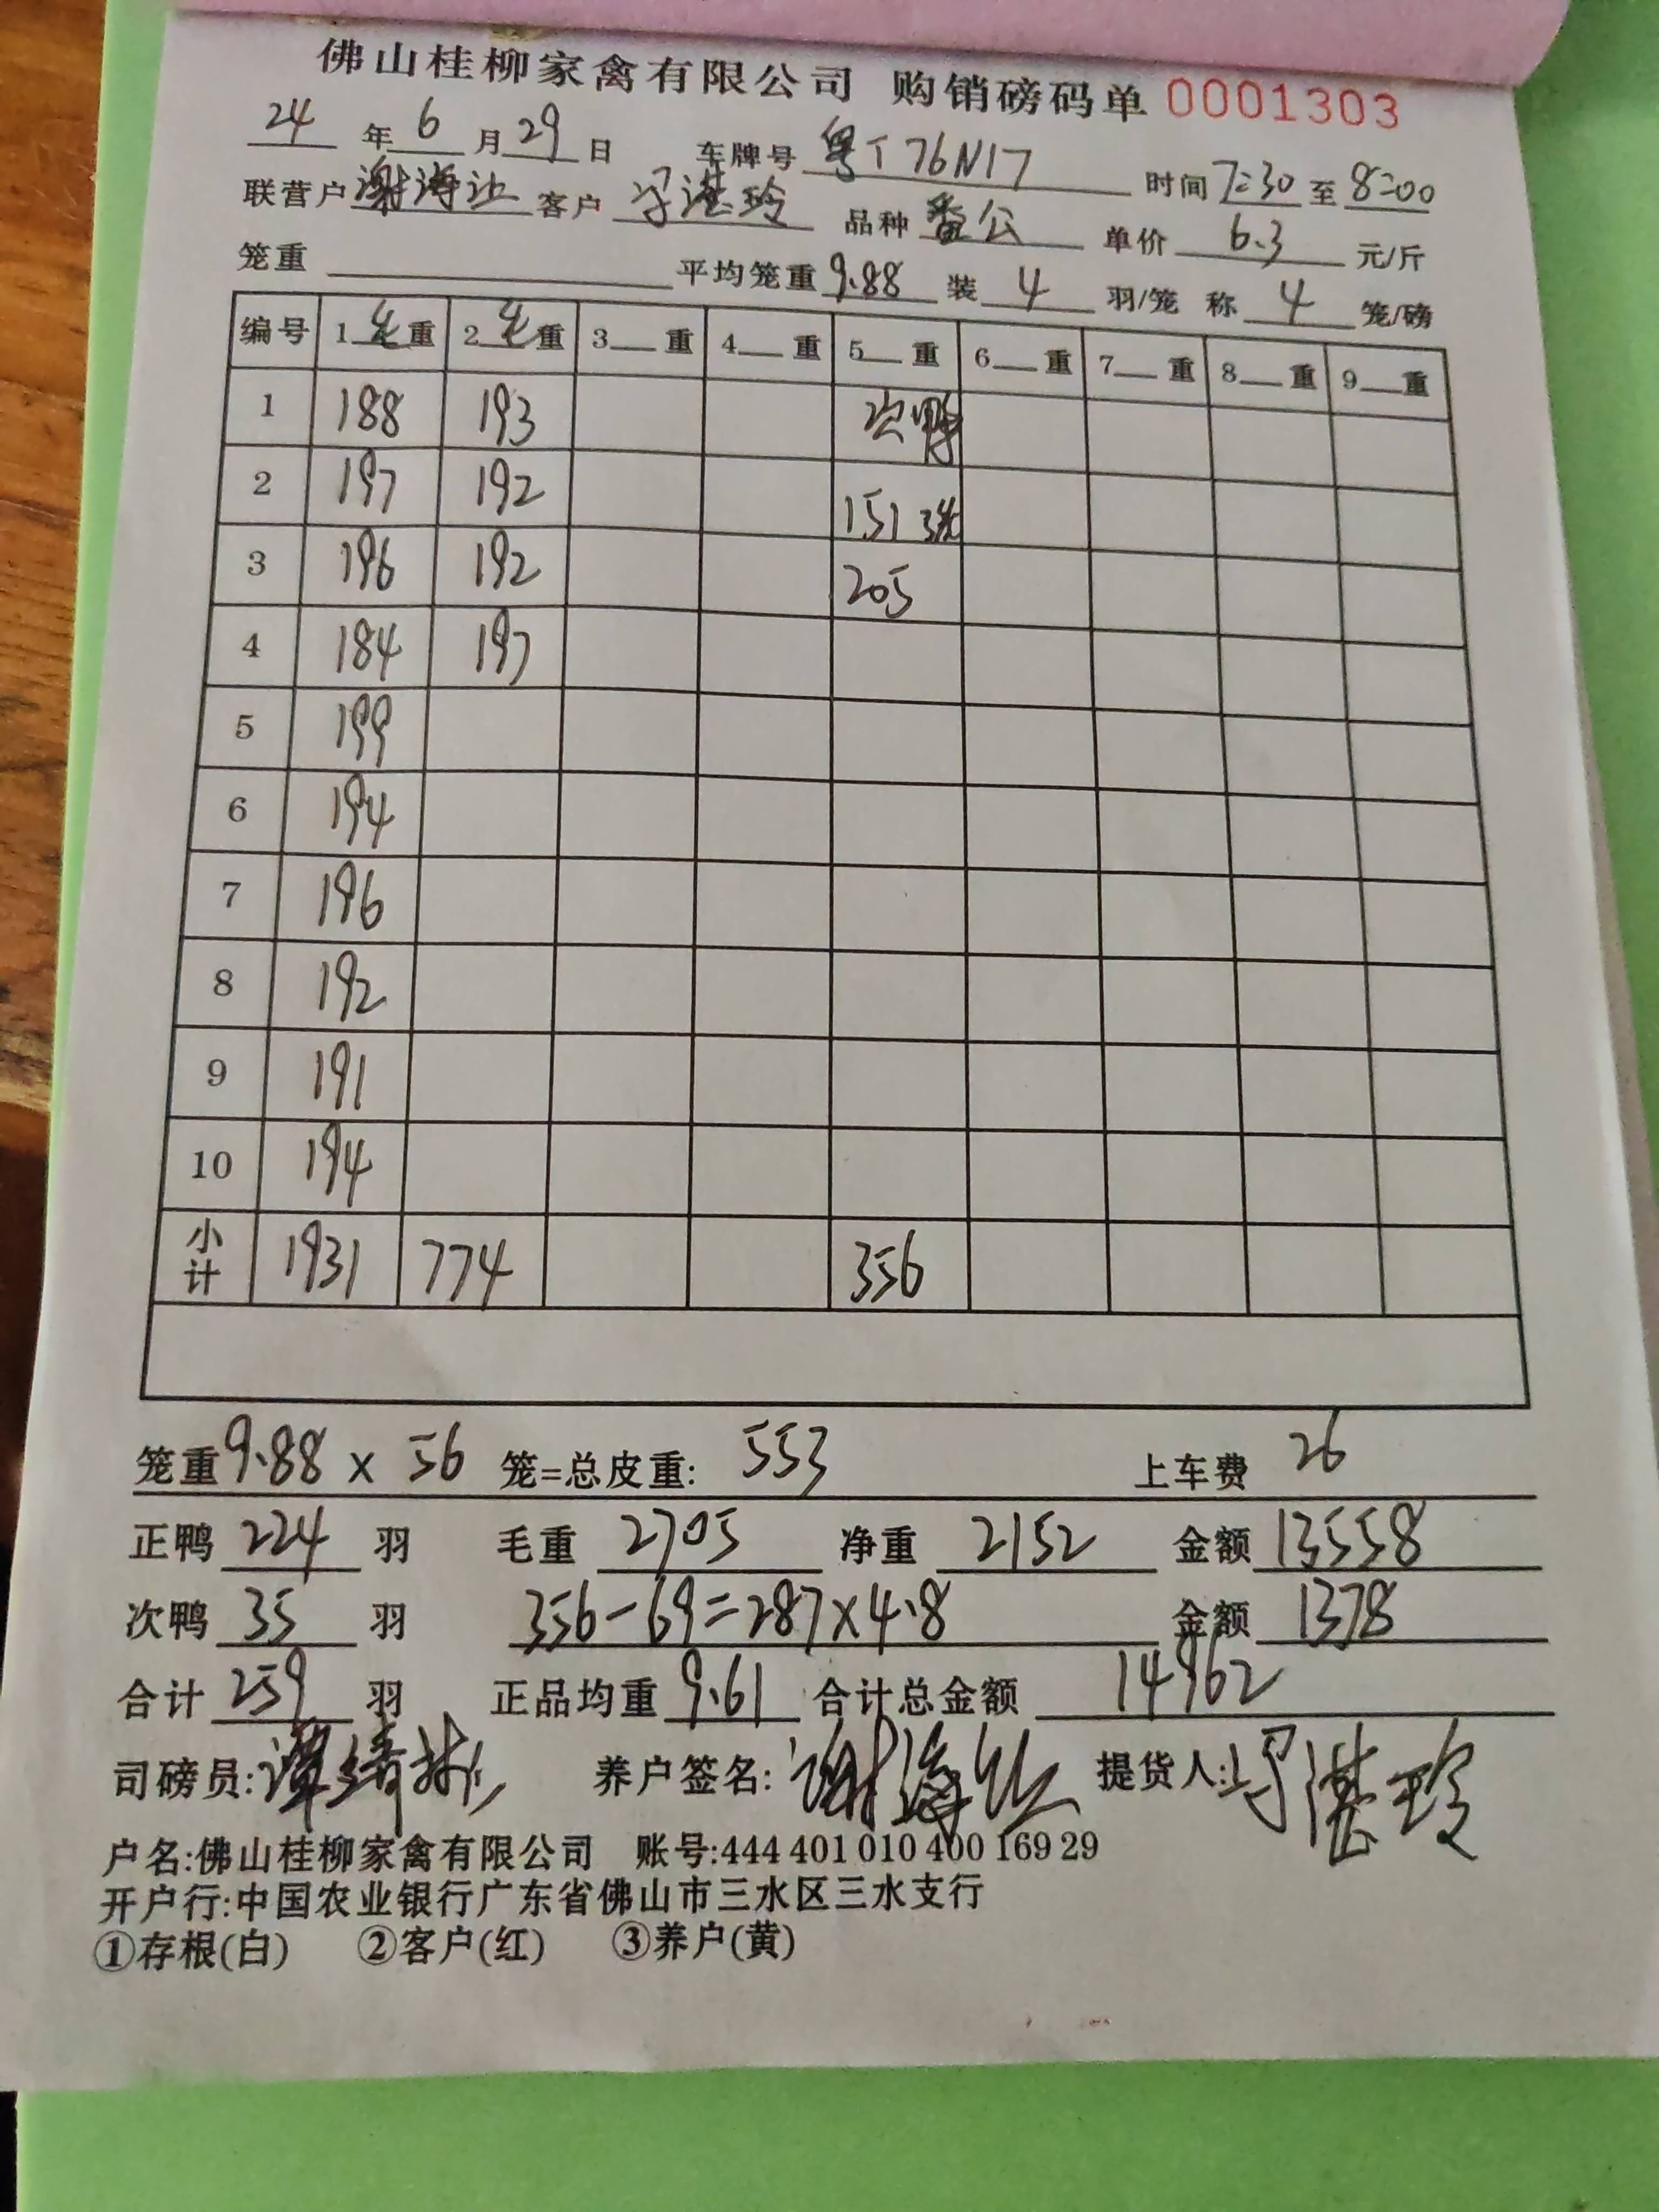 佛山桂柳家禽有限公司 购销磅码单 0001303
24 年 6 月 29 日 车牌号 粤T76N17 时间 7:30 至 8:00
联营户 谢海 客户 湛玲 品种 番公 单价 6.3 元/斤
笼重 平均笼重 9.88 装 4 羽/笼 称 4 笼/磅
编号 1 毛 重 2 毛 重 3 重 4 重 5 重 6 重 7 重 8 重 9 重
1 188 193 次鸭
2 197 192 151 3笼
3 196 192 205
4 184 197
5 199
6 194
7 196
8 192
9 191
10 194
小计 1931 774 356
笼重 9.88 x 56 笼=总皮重: 553 上车费 26
正鸭 224 羽 毛重 2705 净重 2152 金额 13558
次鸭 35 羽 356-69=287×4.8 金额 1378
合计 259 羽 正品均重 9.61 合计总金额 14962
司磅员: 养户签名: 谢海 提货人: 湛玲
户名:佛山桂柳家禽有限公司 账号:444 401 010 400 169 29
开户行:中国农业银行广东省佛山市三水区三水支行
①存根(白) ②客户(红) ③养户(黄)